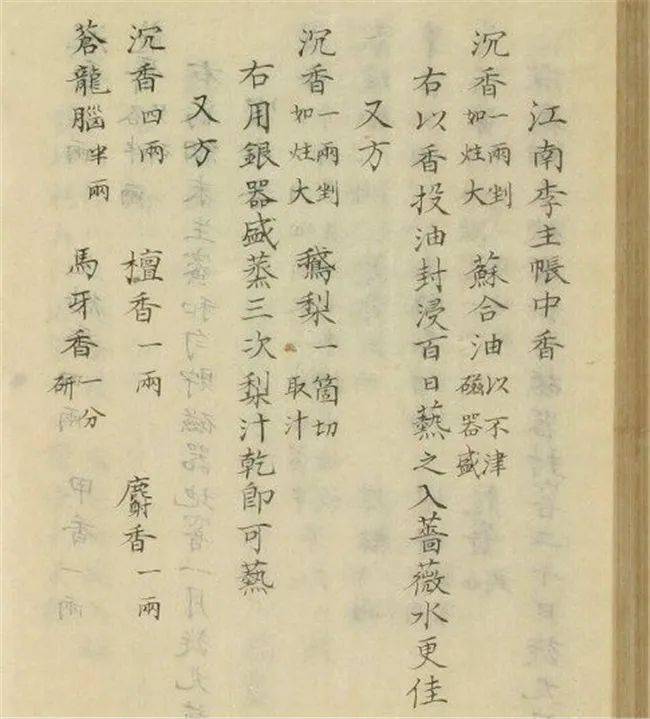 江南李主帳中香
沉香一兩剉如炷大 蘇合油以不津磁器盛
右以香投油封浸百日爇之入薔薇水更佳
又方
沉香一兩剉如炷大 鵝梨一箇切取汁
右用銀器盛蒸三次梨汁乾卽可爇
又方
沉香四兩 檀香一兩 麝香一兩
蒼龍腦半兩 馬牙香一分研